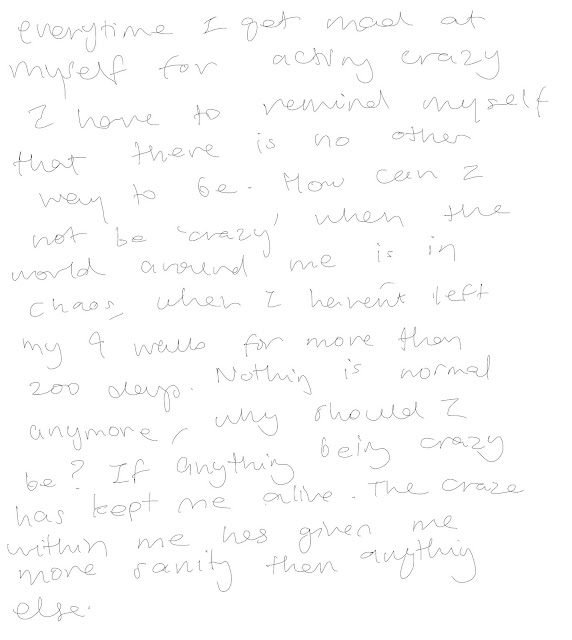 everytime I get mad at
myself for acting crazy
I have to remind myself
that there is no other
way to be. How can I
not be 'crazy' when the
world around me is in
chaos, when I haven't left
my 4 walls for more than
200 days. Nothing is normal
anymore, why should I
be? If anything being crazy
has kept me alive. The craze
within me has given me
more sanity then anything
else.